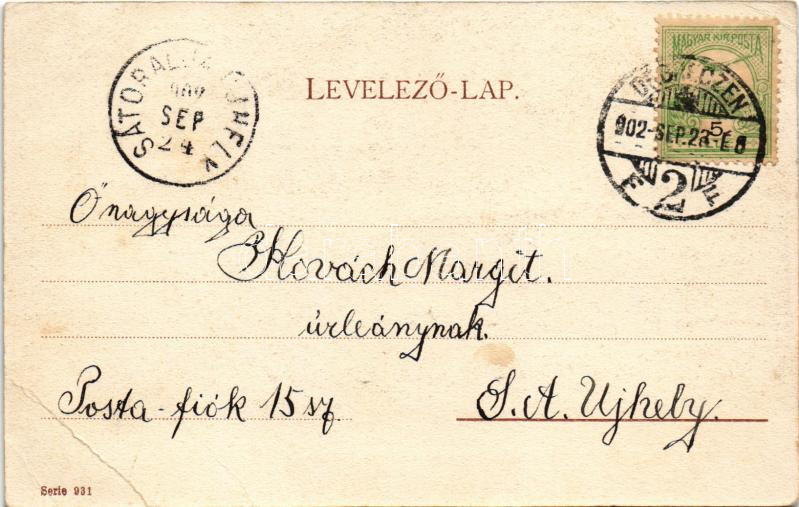 MAGYAR KIR. POSTA
5
LEVELEZŐ-LAP.
SÁTORALJAÚJHELY
SEP
24
DEBRECZEN
902-SEP.23-E8
2
Ő nagysága
Kovách Margit.
úrleánynak.
Posta-fiók 15 sz
S. A. Ujhely.
Serie 931